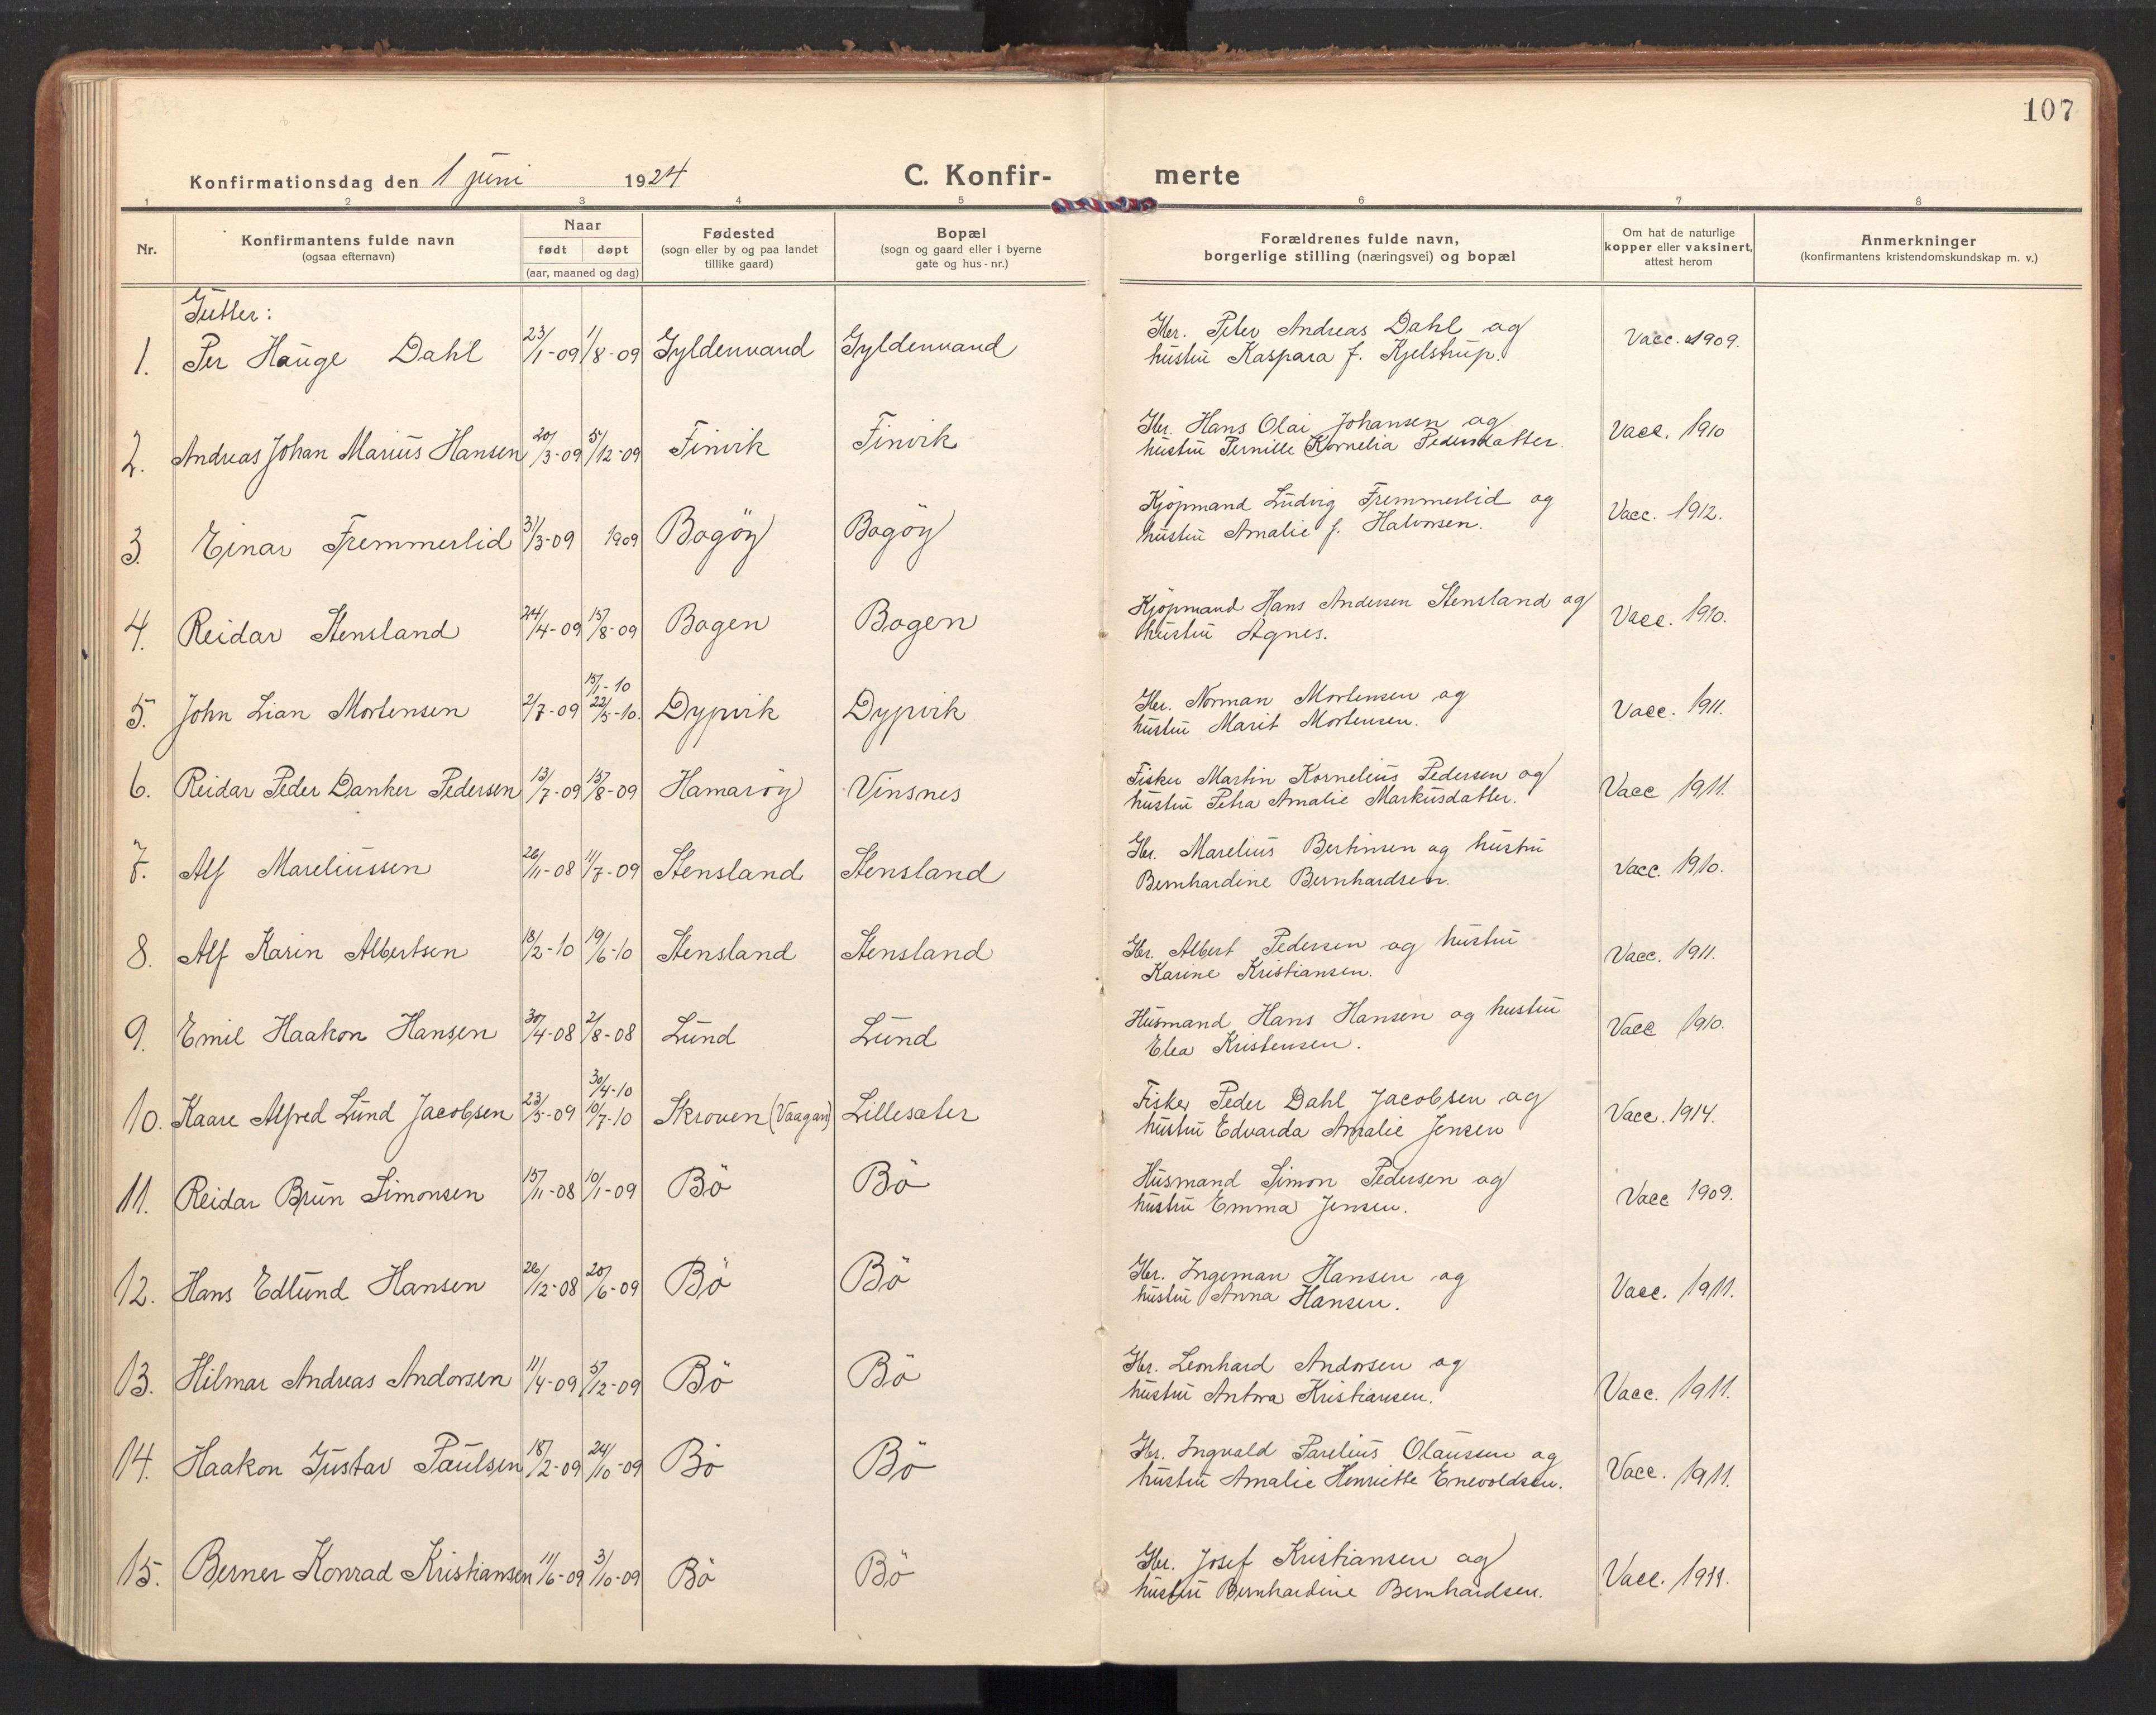 107
Konfirmationsdag den 1 juni 1924 C. Konfir- merte
1 2 3 4 5 6 7 8
Nr.
Konfirmantens fulde navn
(ogsaa efternavn)
Naar
født døpt
(aar, maaned og dag)
Fødested
(sogn eller by og paa landet
tillike gaard)
Bopæl
(sogn og gaard eller i byerne
gate og hus-nr.)
Forældrenes fulde navn,
borgerlige stilling (næringsvei) og bopæl
Om hat de naturlige
kopper eller vaksinert,
attest herom
Anmerkninger
(konfirmantens kristendomskundskap m. v.)
Gutter:
1. Per Hauge Dahl 23/1-09 1/8-09 Gyldenvand Gyldenvand
Gbr. Peter Andreas Dahl og
hustru Kaspara f. Kjelstrup.
Vacc. 1909.
2. Andreas Johan Marius Hansen 20/3-09 5/12-09 Finvik Finvik
Gbr. Hans Olai Johansen og
hustru Pernille Kornelia Pedersdatter.
Vacc. 1910
3 Einar Fremmerlid 31/3-09 1909 Bogöy Bogöy
Kjöpmand Ludvig Fremmerlid og
hustru Amalie f. Halvorsen.
Vacc. 1912.
4. Reidar Stensland 24/4-09 15/8-09 Bogen Bogen
Kjöpmand Hans Andersen Stensland og
hustru Agnes.
Vacc. 1910.
5. John Lian Mortensen 2/7-09 15/1-10 22/5-10. Dypvik Dypvik
Gbr. Norman Mortensen og
hustru Marit Mortensen.
Vacc. 1911.
6. Reidar Peder Danker Pedersen 13/7-09 15/8-09 Hamaröy Vinsnes
Fisker Martin Kornelius Pedersen og
hustru Petra Amalie Markusdatter.
Vacc 1911.
7. Alf Mareliussen 26/11-08 11/7-09 Stensland Stensland
Gbr. Marelius Bertinsen og hustru
Bernhardine Bernhardsen.
Vacc. 1910.
8. Alf Karin Albertsen 18/2-10 19/6-10 Stensland Stensland
Gbr. Albert Pedersen og hustru
Karine Kristiansen.
Vacc. 1911.
9. Emil Haakon Hansen 30/4-08 2/8-08 Lund Lund
Husmand Hans Hansen og hustru
Elea Kristensen.
Vacc 1910.
10. Kaare Alfred Lund Jacobsen 23/5-09 30/4-10 10/7-10 Skroven (Vaagan) Lillesæter
Fisker Peder Dahl Jacobsen og
hustru Edvarda Amalie Jensen
Vacc. 1914.
11. Reidar Brun Simonsen 15/11-08 10/1-09 Bö Bö
Husmand Simon Pedersen og
hustru Emma Jensen.
Vacc 1909.
12. Hans Edlund Hansen 26/12-08 20/6-09 Bö Bö
Gbr. Ingeman Hansen og
hustru Anna Hansen.
Vacc. 1911.
13. Hilmar Andreas Andorsen 11/4-09 5/12-09 Bö Bö
Gbr. Leonhard Andorsen og
hustru Antora Kristiansen.
Vacc. 1911.
14. Haakon Gustav Paulsen 18/2-09 24/10-09 Bö Bö
Gbr. Ingvald Parelius Olausen og
hustru Amalie Henriette Enevoldsen.
Vacc. 1911.
15. Berner Konrad Kristiansen 11/6-09 3/10-09 Bö Bö
Gbr. Josef Kristiansen og
hustru Bernhardine Bernhardsen.
Vacc. 1911.